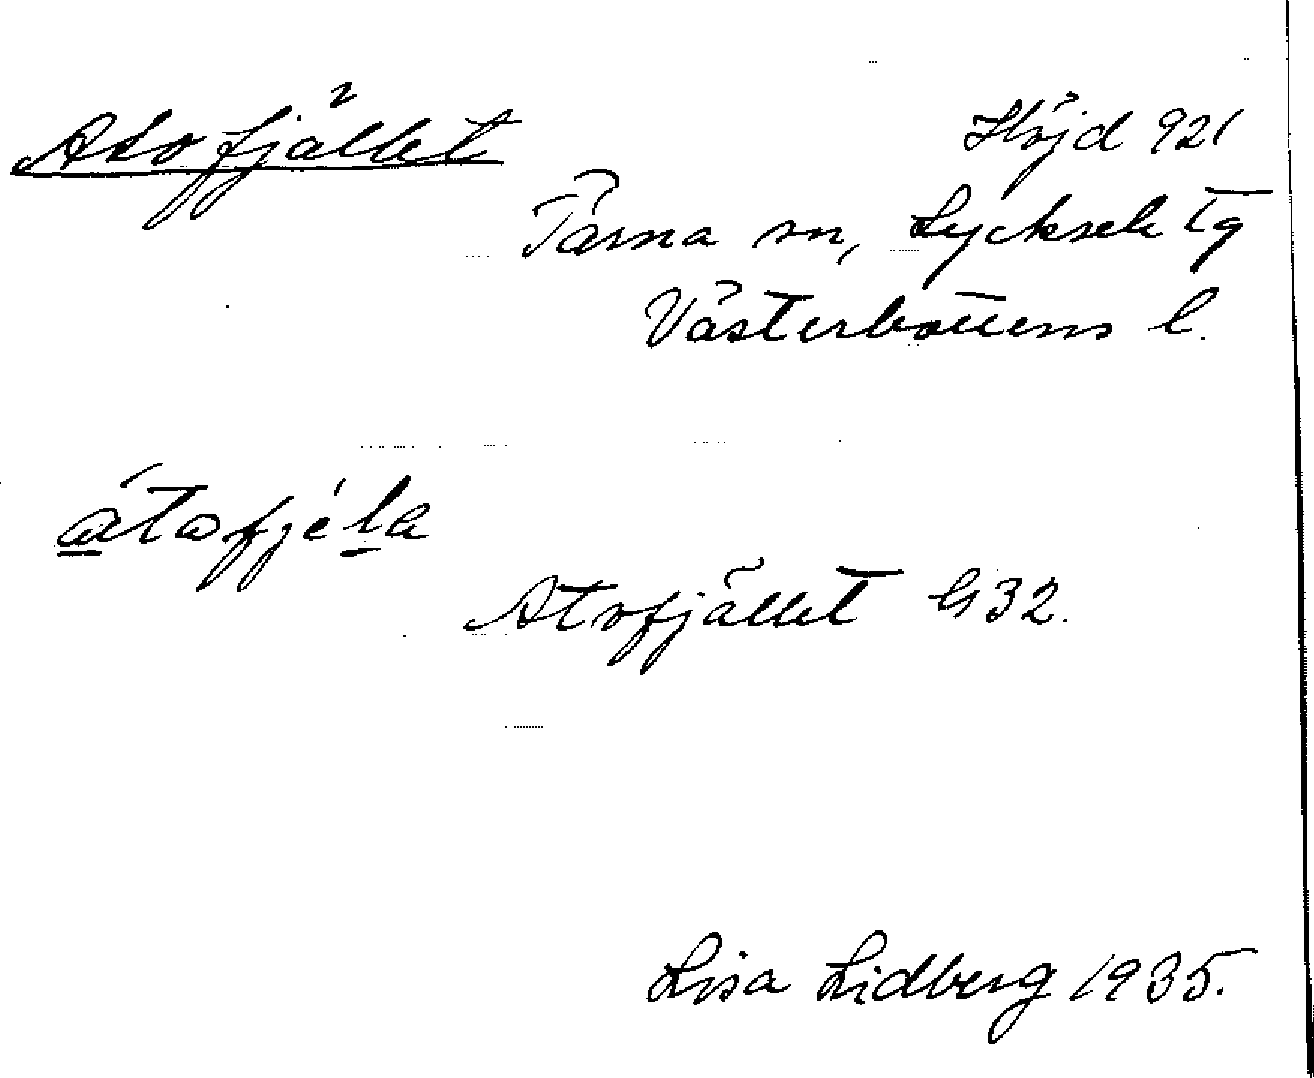 Atofjället Höjd 921
Tärna sn, Lycksele tg
Västerbottens l.
átofjéla
Atofjället G32.
Lisa Lidberg 1935.